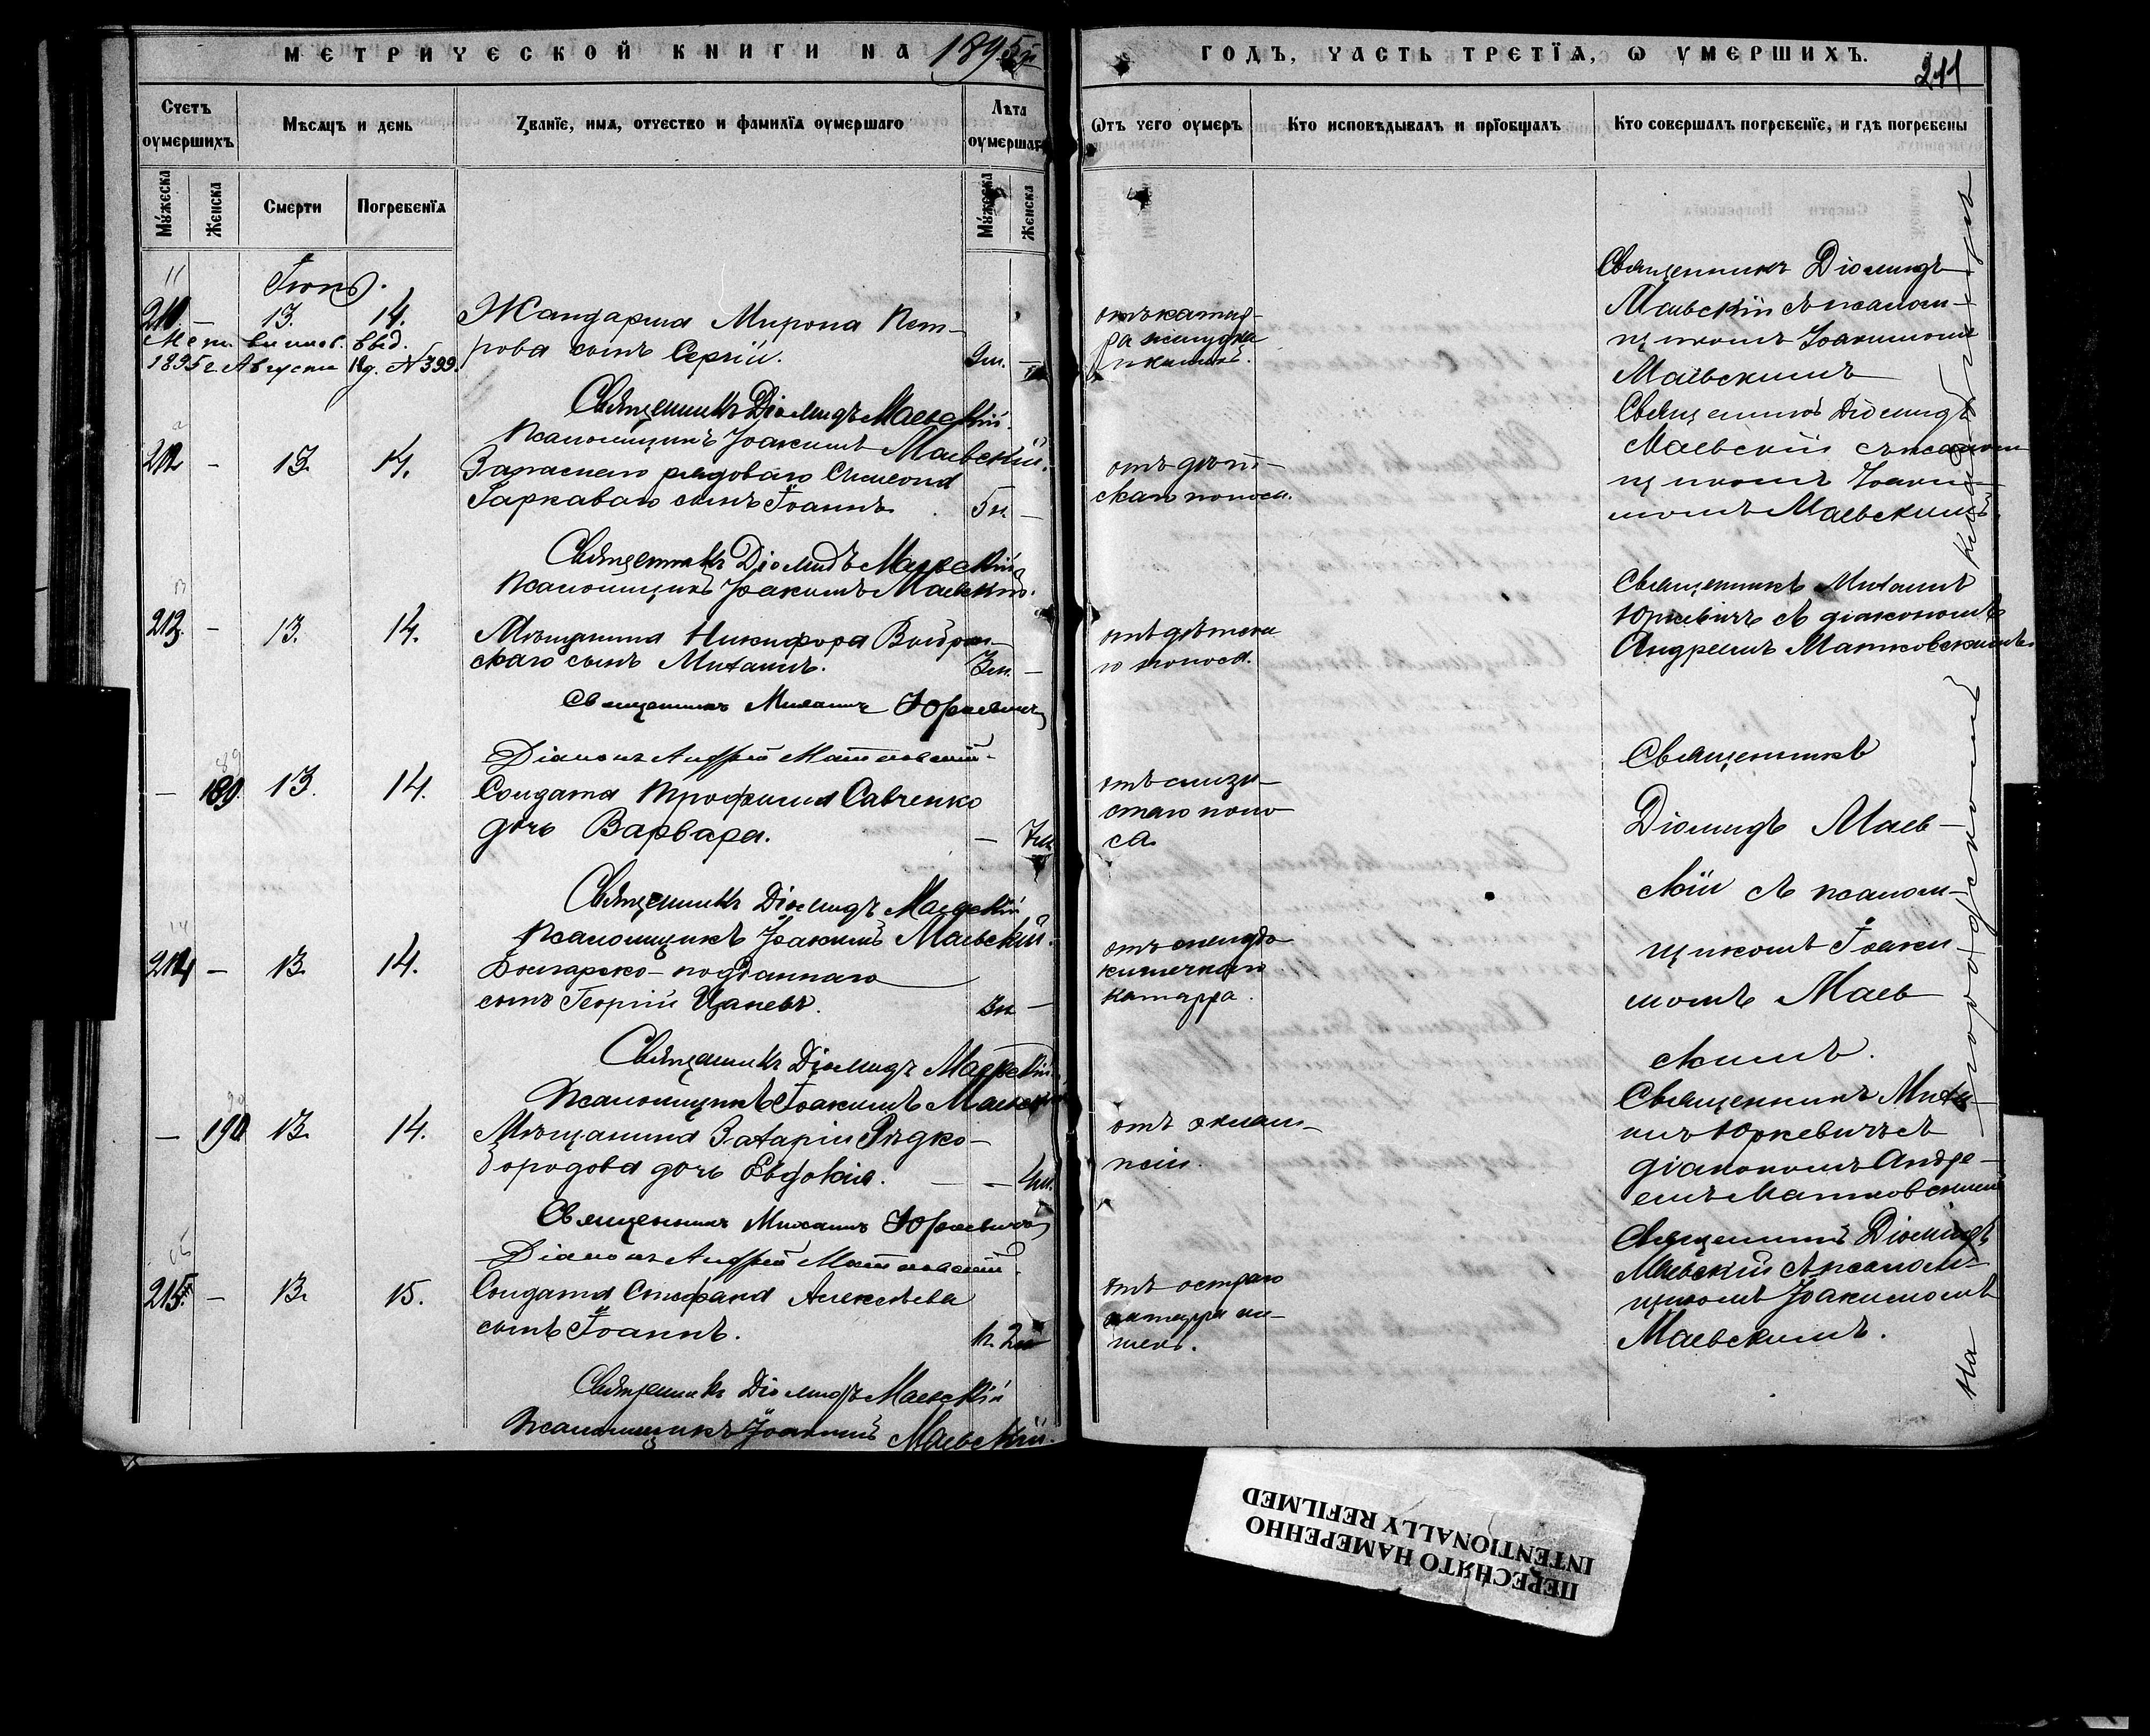 МЕТРИЧЕСКОЙ КНИГИ НА 1895 г.
ГОДЪ, ЧАСТЬ ТРЕТЇѦ, Ѡ ОУМЕРШИХЪ.
211
Счетъ оумершихъ
Мѣсѧцъ и день
Званїе, имѧ, отчество и фамилїѧ оумершаго
Лѣта оумершаго
Ѿтъ чего оумеръ
Кто исповѣдывалъ и прїобщалъ
Кто совершалъ погребенїе, и гдѣ погребены
Мужеска
Женска
Смерти
Погребенїѧ
Мужеска
Женска
11
Іюнь.
211 - 13. 14.
Жандарма Мирона Пет-
рова сынъ Сергій. 9м. -
Метр. вып. выд.
1895 г. Августа 18 д. № 399.
отъ катар-
ра желудка
и кишекъ.
Священникъ Діомидъ
Маевскій съ псалом-
щикомъ Іоакимомъ
Маевскимъ
Священникъ Діомидъ Маевскій.
Псаломщикъ Іоакимъ Маевскій.
212 - 13. 14.
Запаснаго рядоваго Симеона
Гаркаваго сынъ Іоаннъ. 5м. -
отъ дѣт-
скаго поноса.
Священникъ Діомидъ
Маевскій съ псалом-
щикомъ Іоаки-
момъ Маевскимъ.
Священникъ Діомидъ Маевскій
Псаломщикъ Іоакимъ Маевскій.
213. - 13. 14.
Мѣщанина Никифора
скаго сынъ Михаилъ. 3м. -
отъ дѣтска
го поноса.
Священникъ Михаилъ
Юркевичъ съ діакономъ
Андреемъ Матковскимъ
Священникъ Михаилъ Юркевичъ
Діаконъ Андрей Матковскій.
- 189. 13. 14.
Солдата Трофима Савченко
дочь Варвара. - 7м.
отъ слизи-
стаго поно-
са.
Священникъ
Діомидъ Маев-
скій съ псалом-
щикомъ Іоаки-
момъ Маев-
скимъ.
Священникъ Діомидъ Маевскій
Псаломщикъ Іоакимъ Маевскій.
214 - 13. 14.
Болгарско-подданнаго
сынъ Георгій Цаневъ. 3м. -
отъ желудо
кишечнаго
катарра.
Священникъ Діомидъ Маевскій
Псаломщикъ Іоакимъ Маевскій
- 190 13. 14.
Мѣщанина Захаріи Рѣдко-
бородова дочь Евдокія. - 4м.
отъ эклам-
псіи.
Священникъ Миха-
илъ Юркевичъ съ
діакономъ Андре-
емъ Матковскимъ
Священникъ Михаилъ Юркевичъ
Діаконъ Андрей Матковскій.
215. - 13. 15.
Солдата Стефана Алексѣева
сынъ Іоаннъ.
отъ остраго
катарра ки-
шекъ.
Священникъ Діомидъ
Маевскій съ псалом-
щикомъ Іоакимомъ
Маевскимъ.
Священникъ Діомидъ Маевскій
Псаломщикъ Іоакимъ Маевскій.
На городскомъ кладбищѣ
ПЕРЕСНЯТО НАМЕРЕННО
INTENTIONALLY REFILMED